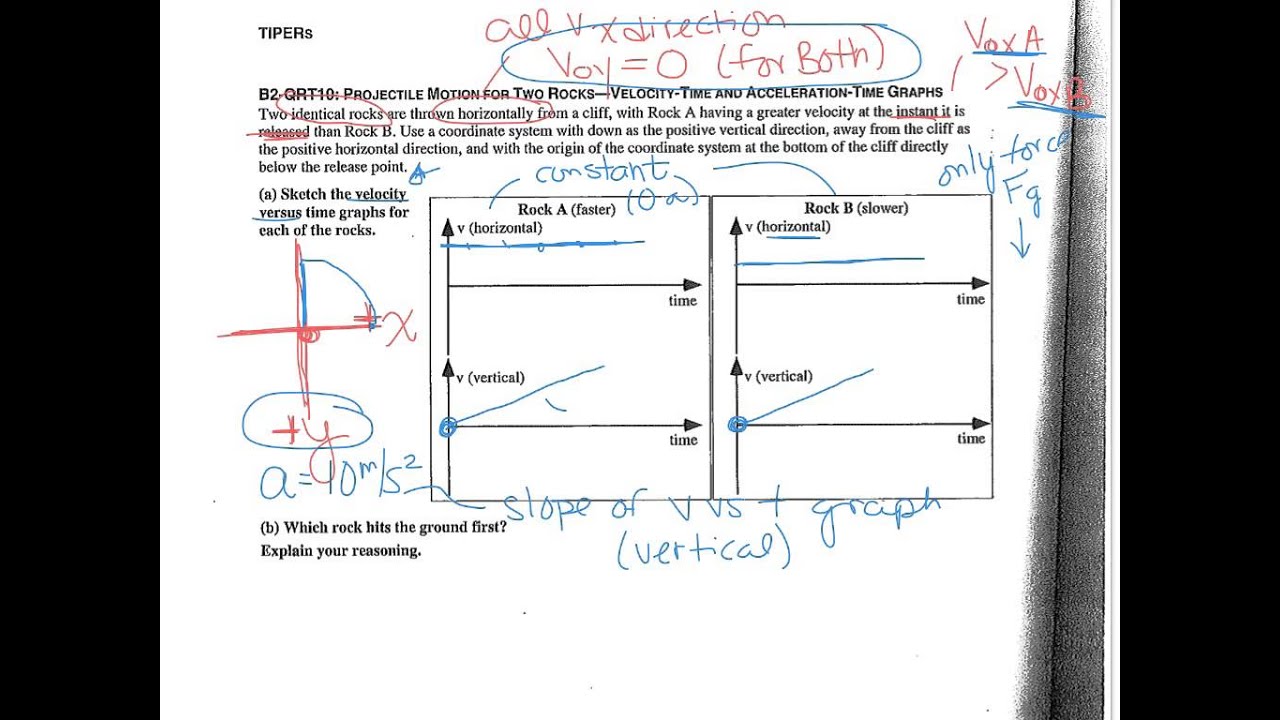 TIPERs
all v x direction
Voy = 0 (for Both)
VoxA
> VoxB
B2-QRT10: PROJECTILE MOTION FOR TWO ROCKS—VELOCITY-TIME AND ACCELERATION-TIME GRAPHS
Two identical rocks are thrown horizontally from a cliff, with Rock A having a greater velocity at the instant it is
released than Rock B. Use a coordinate system with down as the positive vertical direction, away from the cliff as
the positive horizontal direction, and with the origin of the coordinate system at the bottom of the cliff directly
below the release point.
constant
(0 a)
only force
Fg
(a) Sketch the velocity
versus time graphs for
each of the rocks.
Rock A (faster)
v (horizontal)
time
v (vertical)
time
Rock B (slower)
v (horizontal)
time
v (vertical)
time
+x
+y
a = 10 m/s²
slope of v vs t graph
(vertical)
(b) Which rock hits the ground first?
Explain your reasoning.